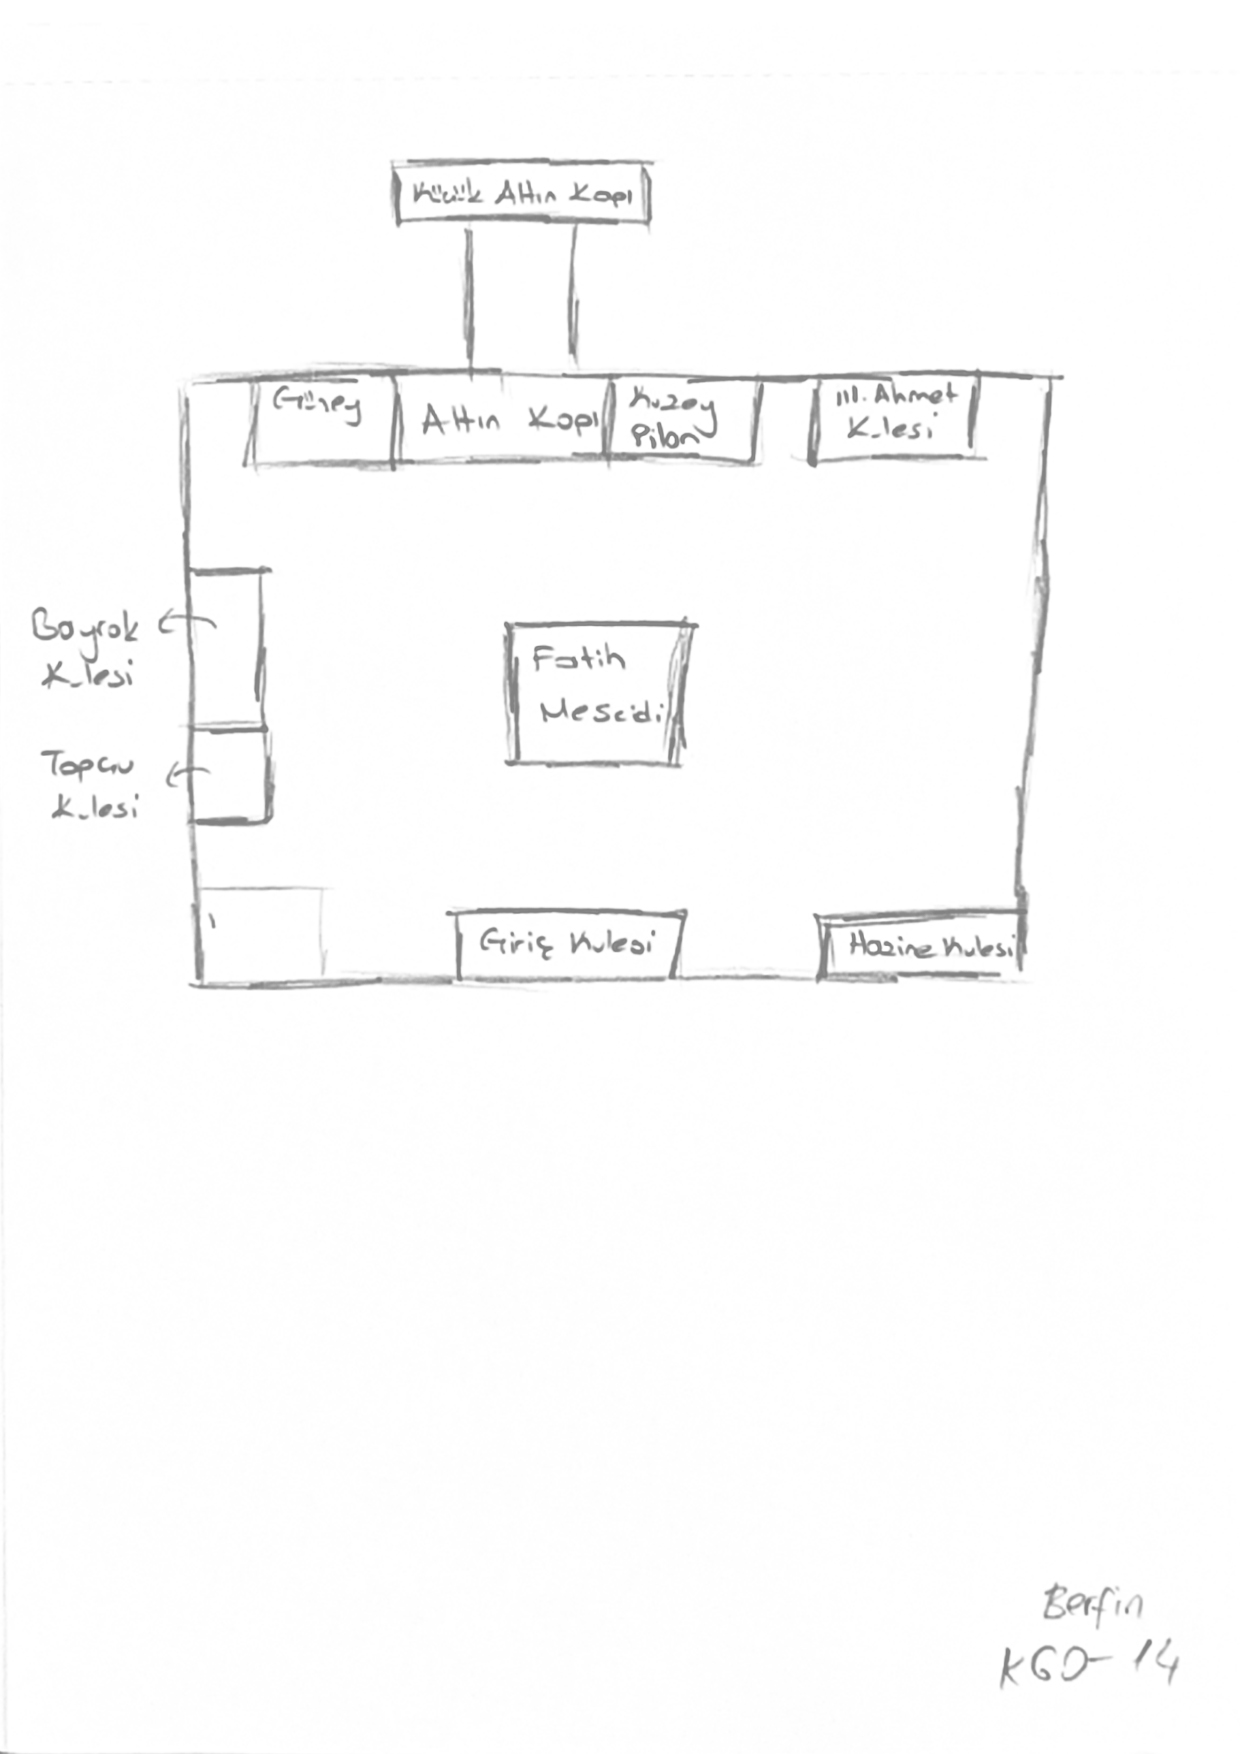 Küçük Altın Kapı
Güney
Altın Kapı
Kuzey
Pilon
III. Ahmet
Kulesi
Bayrak
Kulesi
Fatih
Mescidi
Topçu
Kulesi
Giriş Kulesi
Hazine Kulesi
Berfin
KGD-14